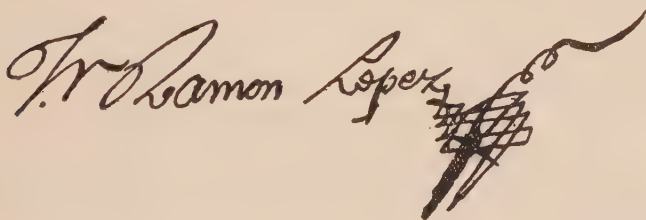 Fr Ramon Lopez